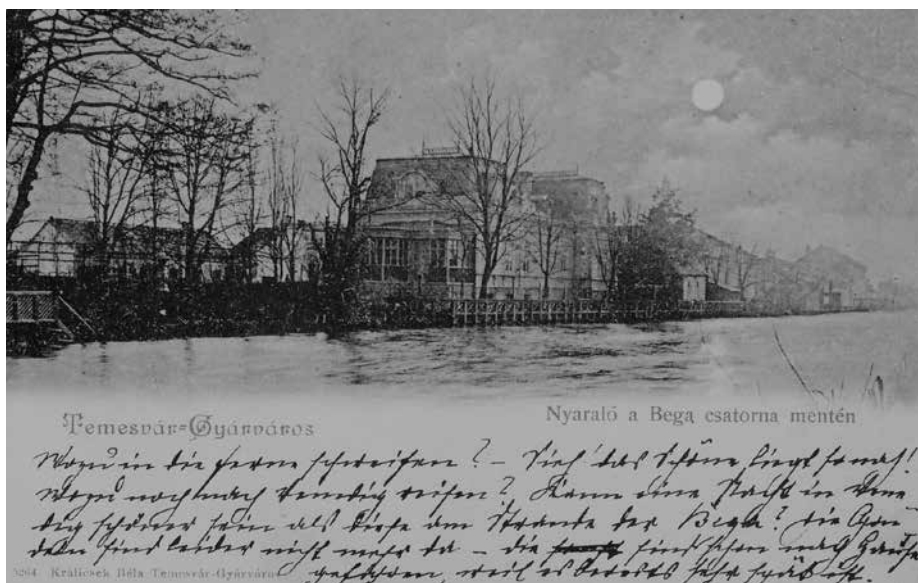 Temesvár-Gyárváros
Nyaraló a Bega csatorna mentén
Wozu in die Ferne schweifen? – Sieh' das Schöne liegt so nah!
Wozu noch nach Venedig reisen? Kann eine Nacht in Vene
dig schöner sein als diese am Strande der Bega? Die Gon
deln sind leider nicht mehr da – die sind schon nach Hause
gefahren, weil es bereits sehr spät ist.
5264 Králicsek Béla Temesvár-Gyárváros